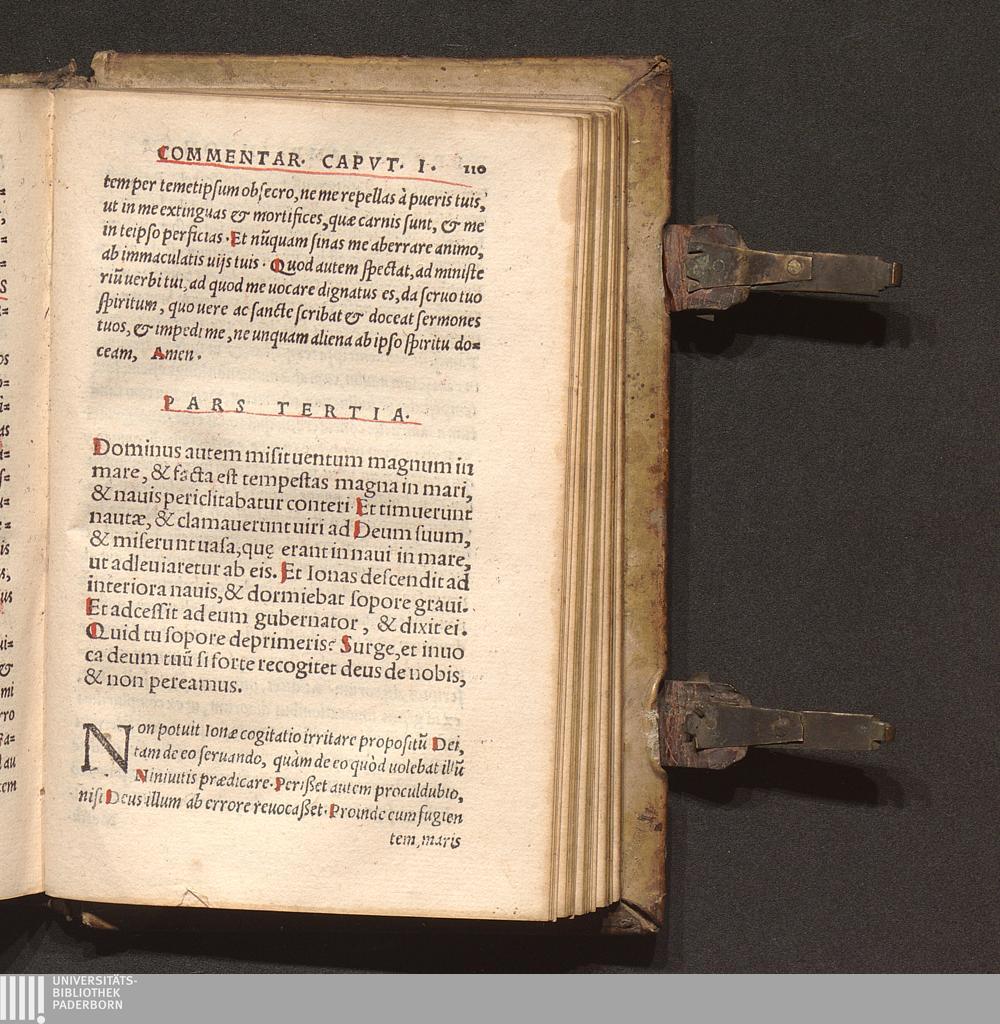 COMMENTAR. CAPVT. I. 110
tem per temetipsum obsecro, ne me repellas à pueris tuis,
ut in me extinguas & mortifices, quæ carnis sunt, & me
in teipso perficias. Et nūquam sinas me aberrare animo,
ab immaculatis uijs tuis. Quod autem spectat, ad ministe
riū uerbi tui, ad quod me uocare dignatus es, da seruo tuo
spiritum, quo uere ac sancte scribat & doceat sermones
tuos, & impedi me, ne unquam aliena ab ipso spiritu do=
ceam, Amen.
PARS TERTIA.
Dominus autem misit uentum magnum in
mare, & facta est tempestas magna in mari,
& nauis periclitabatur conteri. Et timuerunt
nautæ, & clamauerunt uiri ad Deum suum,
& miserunt uasa, quę erant in naui in mare,
ut adleuiaretur ab eis. Et Ionas descendit ad
interiora nauis, & dormiebat sopore graui.
Et adcessit ad eum gubernator, & dixit ei.
Quid tu sopore deprimeris? Surge, et inuo
ca deum tuū si forte recogitet deus de nobis,
& non pereamus.
Non potuit Ionæ cogitatio irritare propositū Dei,
tam de eo seruando, quàm de eo quòd uolebat illū
Niniuitis prædicare. Perißet autem proculdubio,
nisi Deus illum ab errore reuocaßet. Proinde eum fugien
tem, maris
UNIVERSITÄTS-
BIBLIOTHEK
PADERBORN